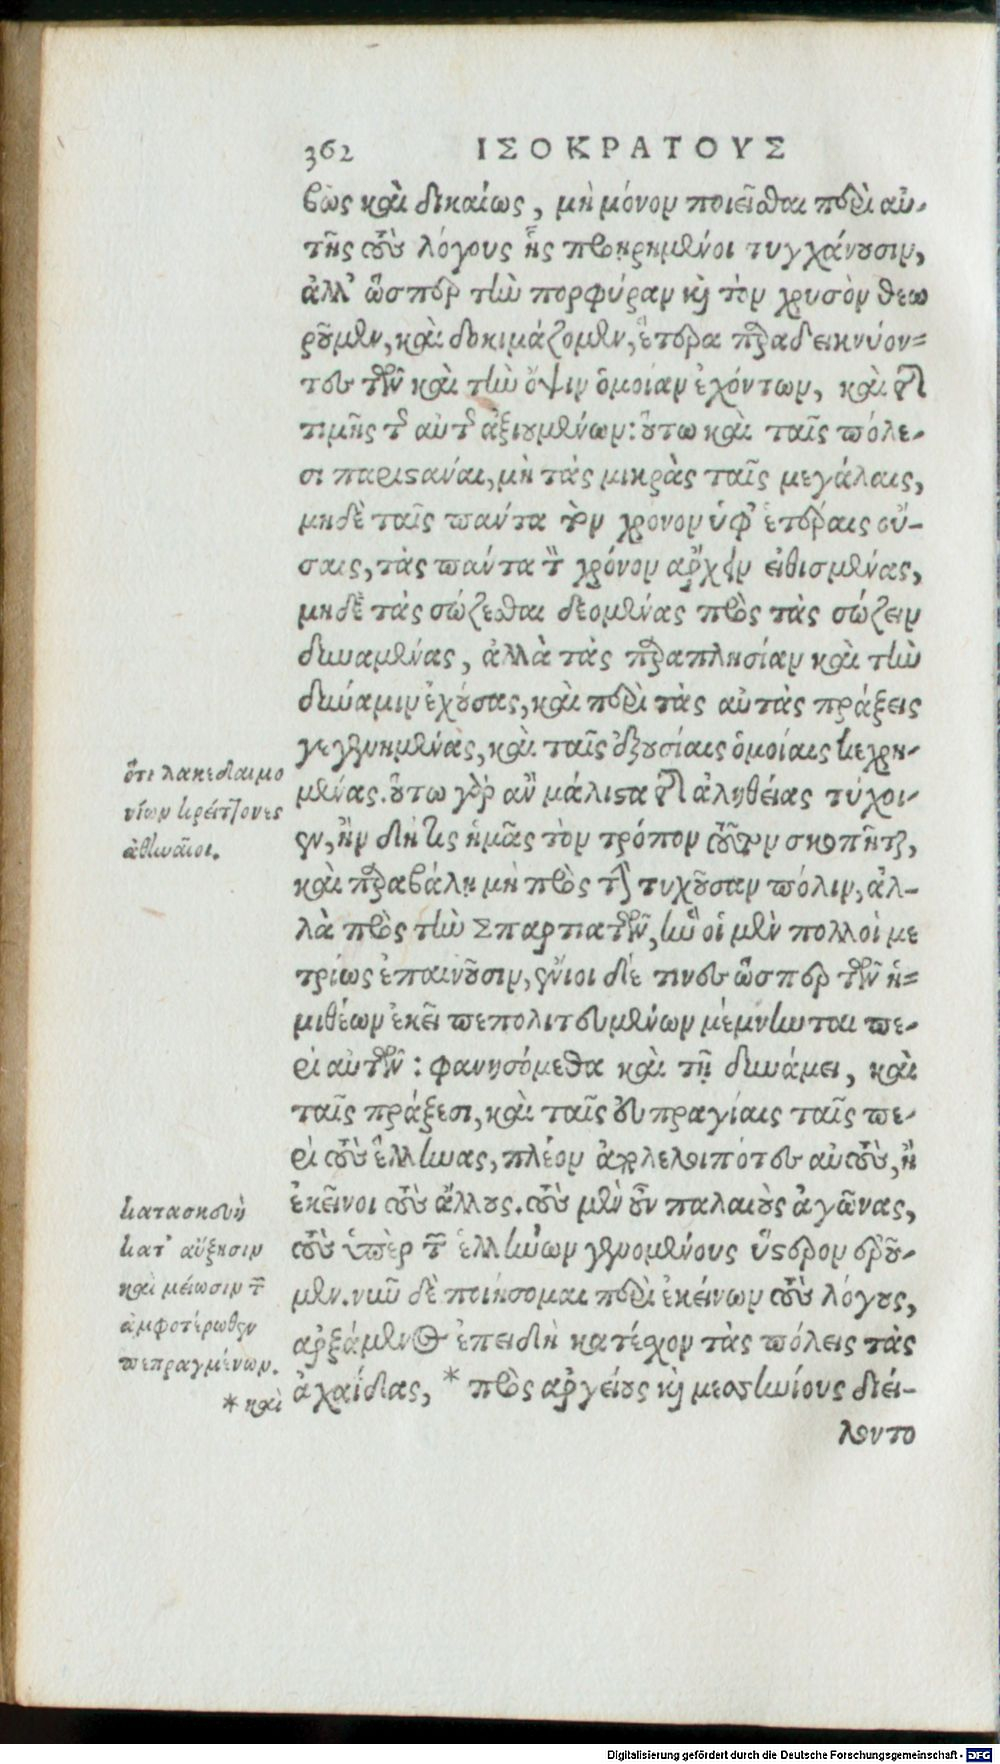 362 ΙΣΟΚΡΑΤΟΥΣ
βῶς καὶ δικαίως, μὴ μόνον ποιεῖσθαι περὶ αὐ-
τῆς τοὺς λόγους ἧς προῃρημένοι τυγχάνουσιν,
ἀλλ' ὥσπερ τὴν πορφύραν καὶ τὸν χρυσὸν θεω
ροῦμεν, καὶ δοκιμάζομεν, ἕτερα παραδεικνύον=
τες τῶν καὶ τὴν ὄψιν ὁμοίαν ἐχόντων, καὶ τῆς
τιμῆς τῆς αὐτῆς ἀξιουμένων: οὕτω καὶ ταῖς πόλε-
σι παριστάναι, μὴ τὰς μικρὰς ταῖς μεγάλαις,
μηδὲ ταῖς πάντα τὸν χρόνον ὑφ' ἑτέραις οὔ-
σαις, τὰς πάντα τὸν χρόνον ἄρχειν εἰθισμένας,
μηδὲ τὰς σώζεσθαι δεομένας πρὸς τὰς σώζειν
δυναμένας, ἀλλὰ τὰς παραπλησίαν καὶ τὴν
δύναμιν ἐχούσας, καὶ περὶ τὰς αὐτὰς πράξεις
γεγενημένας, καὶ ταῖς ἐξουσίαις ὁμοίαις κεχρη-
μένας. οὕτω γὰρ ἂν μάλιστα τῆς ἀληθείας τύχοι-
εν, ἢν δή τις ἡμᾶς τὸν τρόπον τοῦτον σκοπῆται,
καὶ παραβάλῃ μὴ πρὸς τὴν τυχοῦσαν πόλιν, ἀλ-
λὰ πρὸς τὴν Σπαρτιατῶν, ἣν οἱ μὲν πολλοὶ με
τρίως ἐπαινοῦσιν, ἔνιοι δέ τινες ὥσπερ τῶν ἡ=
μιθέων ἐκεῖ πεπολιτευμένων μέμνηνται πε-
ρὶ αὐτῶν: φανησόμεθα καὶ τῇ δυνάμει, καὶ
ταῖς πράξεσι, καὶ ταῖς εὐπραγίαις ταῖς πε-
ρὶ τοὺς ἕλληνας, πλέον ἀπολελοιπότες αὐτοὺς, ἢ
ἐκεῖνοι τοὺς ἄλλους. τοὺς μὲν οὖν παλαιοὺς ἀγῶνας,
τοὺς ὑπὲρ τῶν ἑλλήνων γενομένους ὕστερον ἐροῦ-
μεν. νῦν δὲ ποιήσομαι περὶ ἐκείνων τοὺς λόγους,
ἀρξάμενος ἐπειδὴ κατέσχον τὰς πόλεις τὰς
ἀχαΐδας, * πρὸς ἀργείους καὶ μεσσηνίους διεί-
λοντο
ὅτι λακεδαιμο
νίων κρείττονες
ἀθηναῖοι.
κατασκευὴ
κατ' αὔξησιν
καὶ μείωσιν τῶν
ἀμφοτέρωθεν
πεπραγμένων.
* καὶ
Digitalisierung gefördert durch die Deutsche Forschungsgemeinschaft - DFG